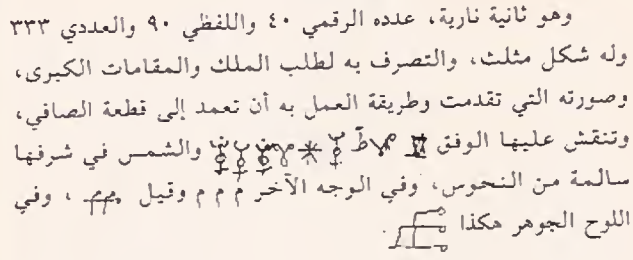 وهو ثانية نارية، عدده الرقمي ٤٠ واللفظي ٩٠ والعددي ٣٣٣
وله شكل مثلث، والتصرف به لطلب الملك والمقامات الكبرى،
وصورته التي تقدمت وطريقة العمل به أن تعمد إلى قطعة الصافي،
وتنقش عليها الوفق ط والشمس في شرفها
سالمة من النحوس، وفي الوجه الآخر م م م م وقيل ، وفي
اللوح الجوهر هكذا .